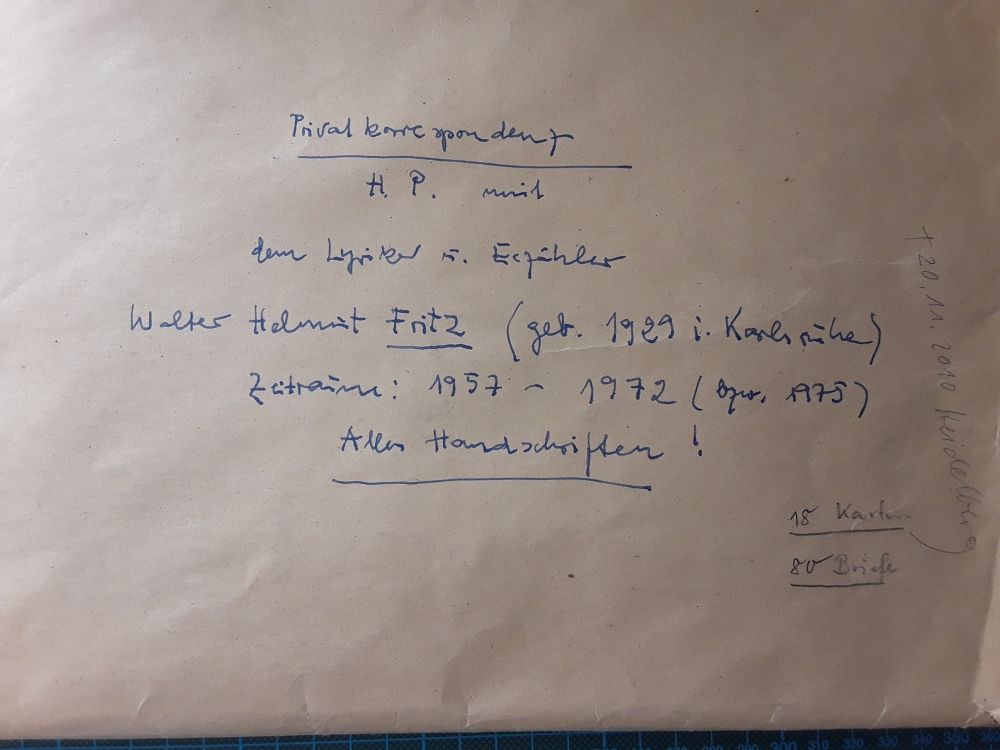 Privatkorrespondenz
H. P. mit
dem Lyriker u. Erzähler
Walter Helmut Fritz (geb. 1929 i. Karlsruhe)
Zeitraum: 1957 - 1972 (bzw. 1975)
Alles Handschriften!
18 Karten
80 Briefe
† 20.11.2010 Heidelberg